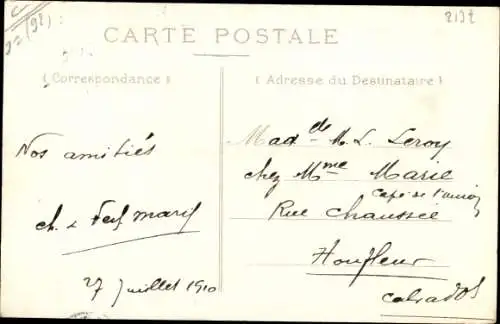 2192
CARTE POSTALE
(Correspondance)
(Adresse du Destinataire)
Nos amitiés
27 Juillet 1910
Mad de M. L. Leroy
chez Mme Marie
Café de l'union
Rue Chaussée
Honfleur
Calvados